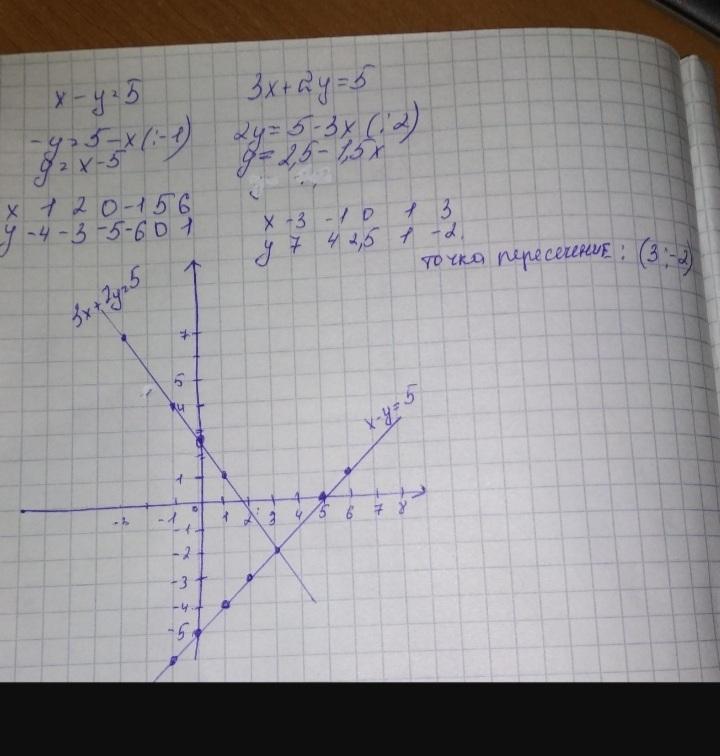 x - y = 5
-y = 5 - x (:-1)
y = x - 5
x 1 2 0 -1 5 6
y -4 -3 -5 -6 0 1
3x + 2y = 5
2y = 5 - 3x (:2)
y = 2,5 - 1,5x
x -3 -1 0 1 3
y 7 4 2,5 1 -2
точка пересечение: (3;-2)
3x + 2y = 5
x - y = 5
7
5
4
1
-3 -1 0 1 2 3 4 5 6 7 8
-1
-2
-3
-4
-5